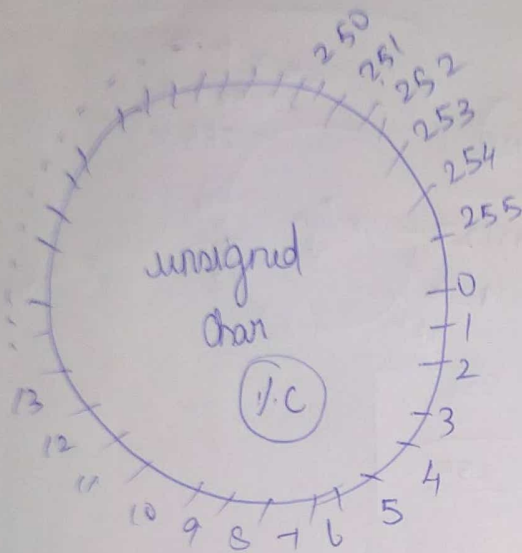 250
251
252
253
254
255
0
1
2
3
4
5
6
7
8
9
10
11
12
13
unsigned
char
%c